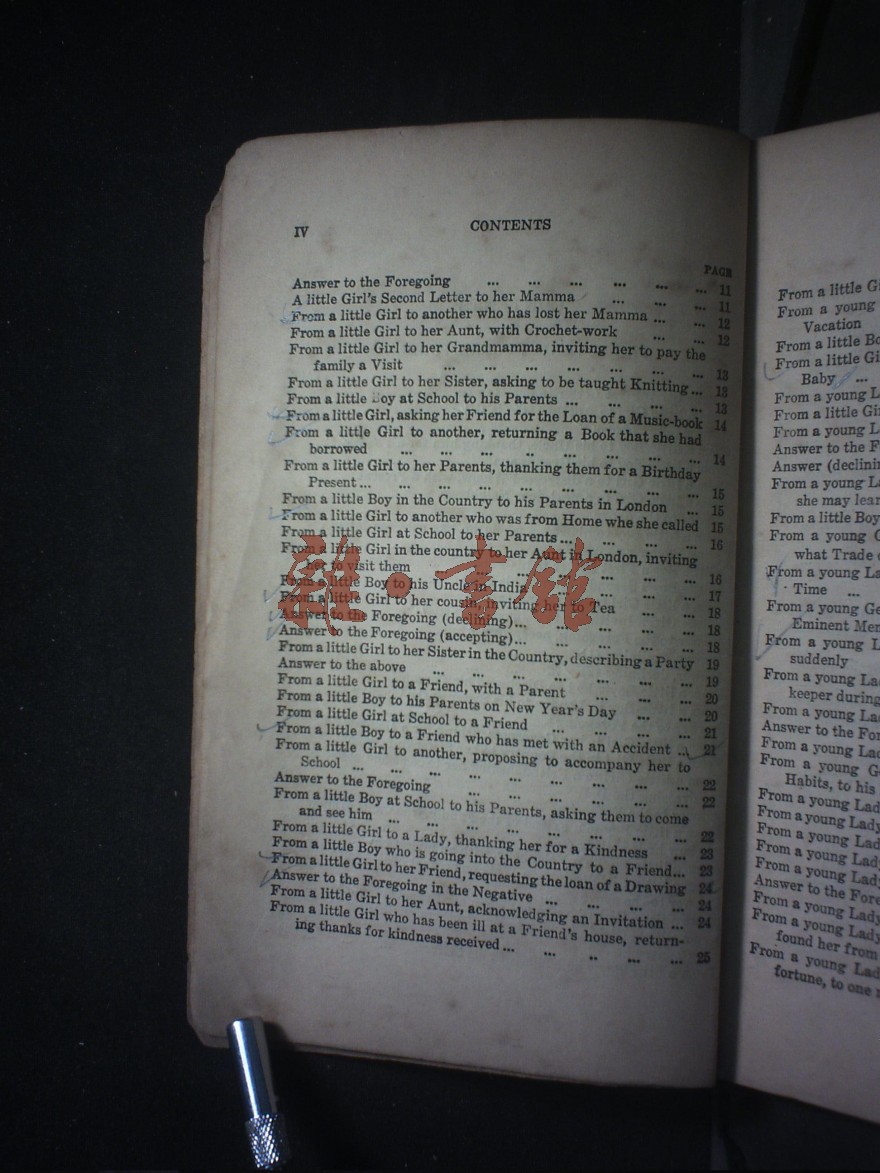 IV CONTENTS
PAGE
Answer to the Foregoing ... ... ... ... ... ... 11
A little Girl's Second Letter to her Mamma ... ... ... 11
From a little Girl to another who has lost her Mamma ... ... 12
From a little Girl to her Aunt, with Crochet-work ... ... 12
From a little Girl to her Grandmamma, inviting her to pay the
family a Visit ... ... ... ... ... ... ... 13
From a little Girl to her Sister, asking to be taught Knitting ... 13
From a little Boy at School to his Parents ... ... ... ... 13
From a little Girl, asking her Friend for the Loan of a Music-book 14
From a little Girl to another, returning a Book that she had
borrowed ... ... ... .. ... ... ... ... 14
From a little Girl to her Parents, thanking them for a Birthday
Present ... ... ... ... ... ... ... ... ... 15
From a little Boy in the Country to his Parents in London ... 15
From a little Girl to another who was from Home whe she called 15
From a little Girl at School to her Parents ... ... ... ... 16
From a little Girl in the country to her Aunt in London, inviting
her to visit them ... ... ... ... 16
From a little Boy to his Uncle in India ... ... ... 17
From a little Girl to her cousin, inviting her to Tea ... ... 18
Answer to the Foregoing (declining) ... ... ... ... ... 18
Answer to the Foregoing (accepting) ... ... ... ... ... 18
From a little Girl to her Sister in the Country, describing a Party 19
Answer to the above ... ... ... ... ... ... ... 19
From a little Girl to a Friend, with a Parent ... ... ... 20
From a little Boy to his Parents on New Year's Day ... ... 20
From a little Girl at School to a Friend ... ... ... ... 21
From a little Boy to a Friend who has met with an Accident ... 21
From a little Girl to another, proposing to accompany her to
School ... ... ... ... ... ... ... ... ... 22
Answer to the Foregoing ... ... ... ... ... ... 22
From a little Boy at School to his Parents, asking them to come
and see him ... ... ... ... ... ... ... ... 22
From a little Girl to a Lady, thanking her for a Kindness ... 23
From a little Boy who is going into the Country to a Friend... 23
From a little Girl to her Friend, requesting the loan of a Drawing 24
Answer to the Foregoing in the Negative ... ... ... ... 24
From a little Girl to her Aunt, acknowledging an Invitation ... 24
From a little Girl who has been ill at a Friend's house, return-
ing thanks for kindness received ... ... .. ... ... 25
From a little
From a young
Vacation
From a little
From a little
Baby ...
From a young
From a little
From a young
Answer to the
Answer
From a young
she may
From a little Boy
From a young
what Trade
From a young
Time ...
From a young
Eminent
From a young
suddenly
From a young
keeper during
From a young
Answer to the
From a young
From a young
Habits, to his
From a young
From a young
From a young
From a young
From a young
Answer to the
From a young
From a young
found her from
From a young
fortune, to one
雜·書館